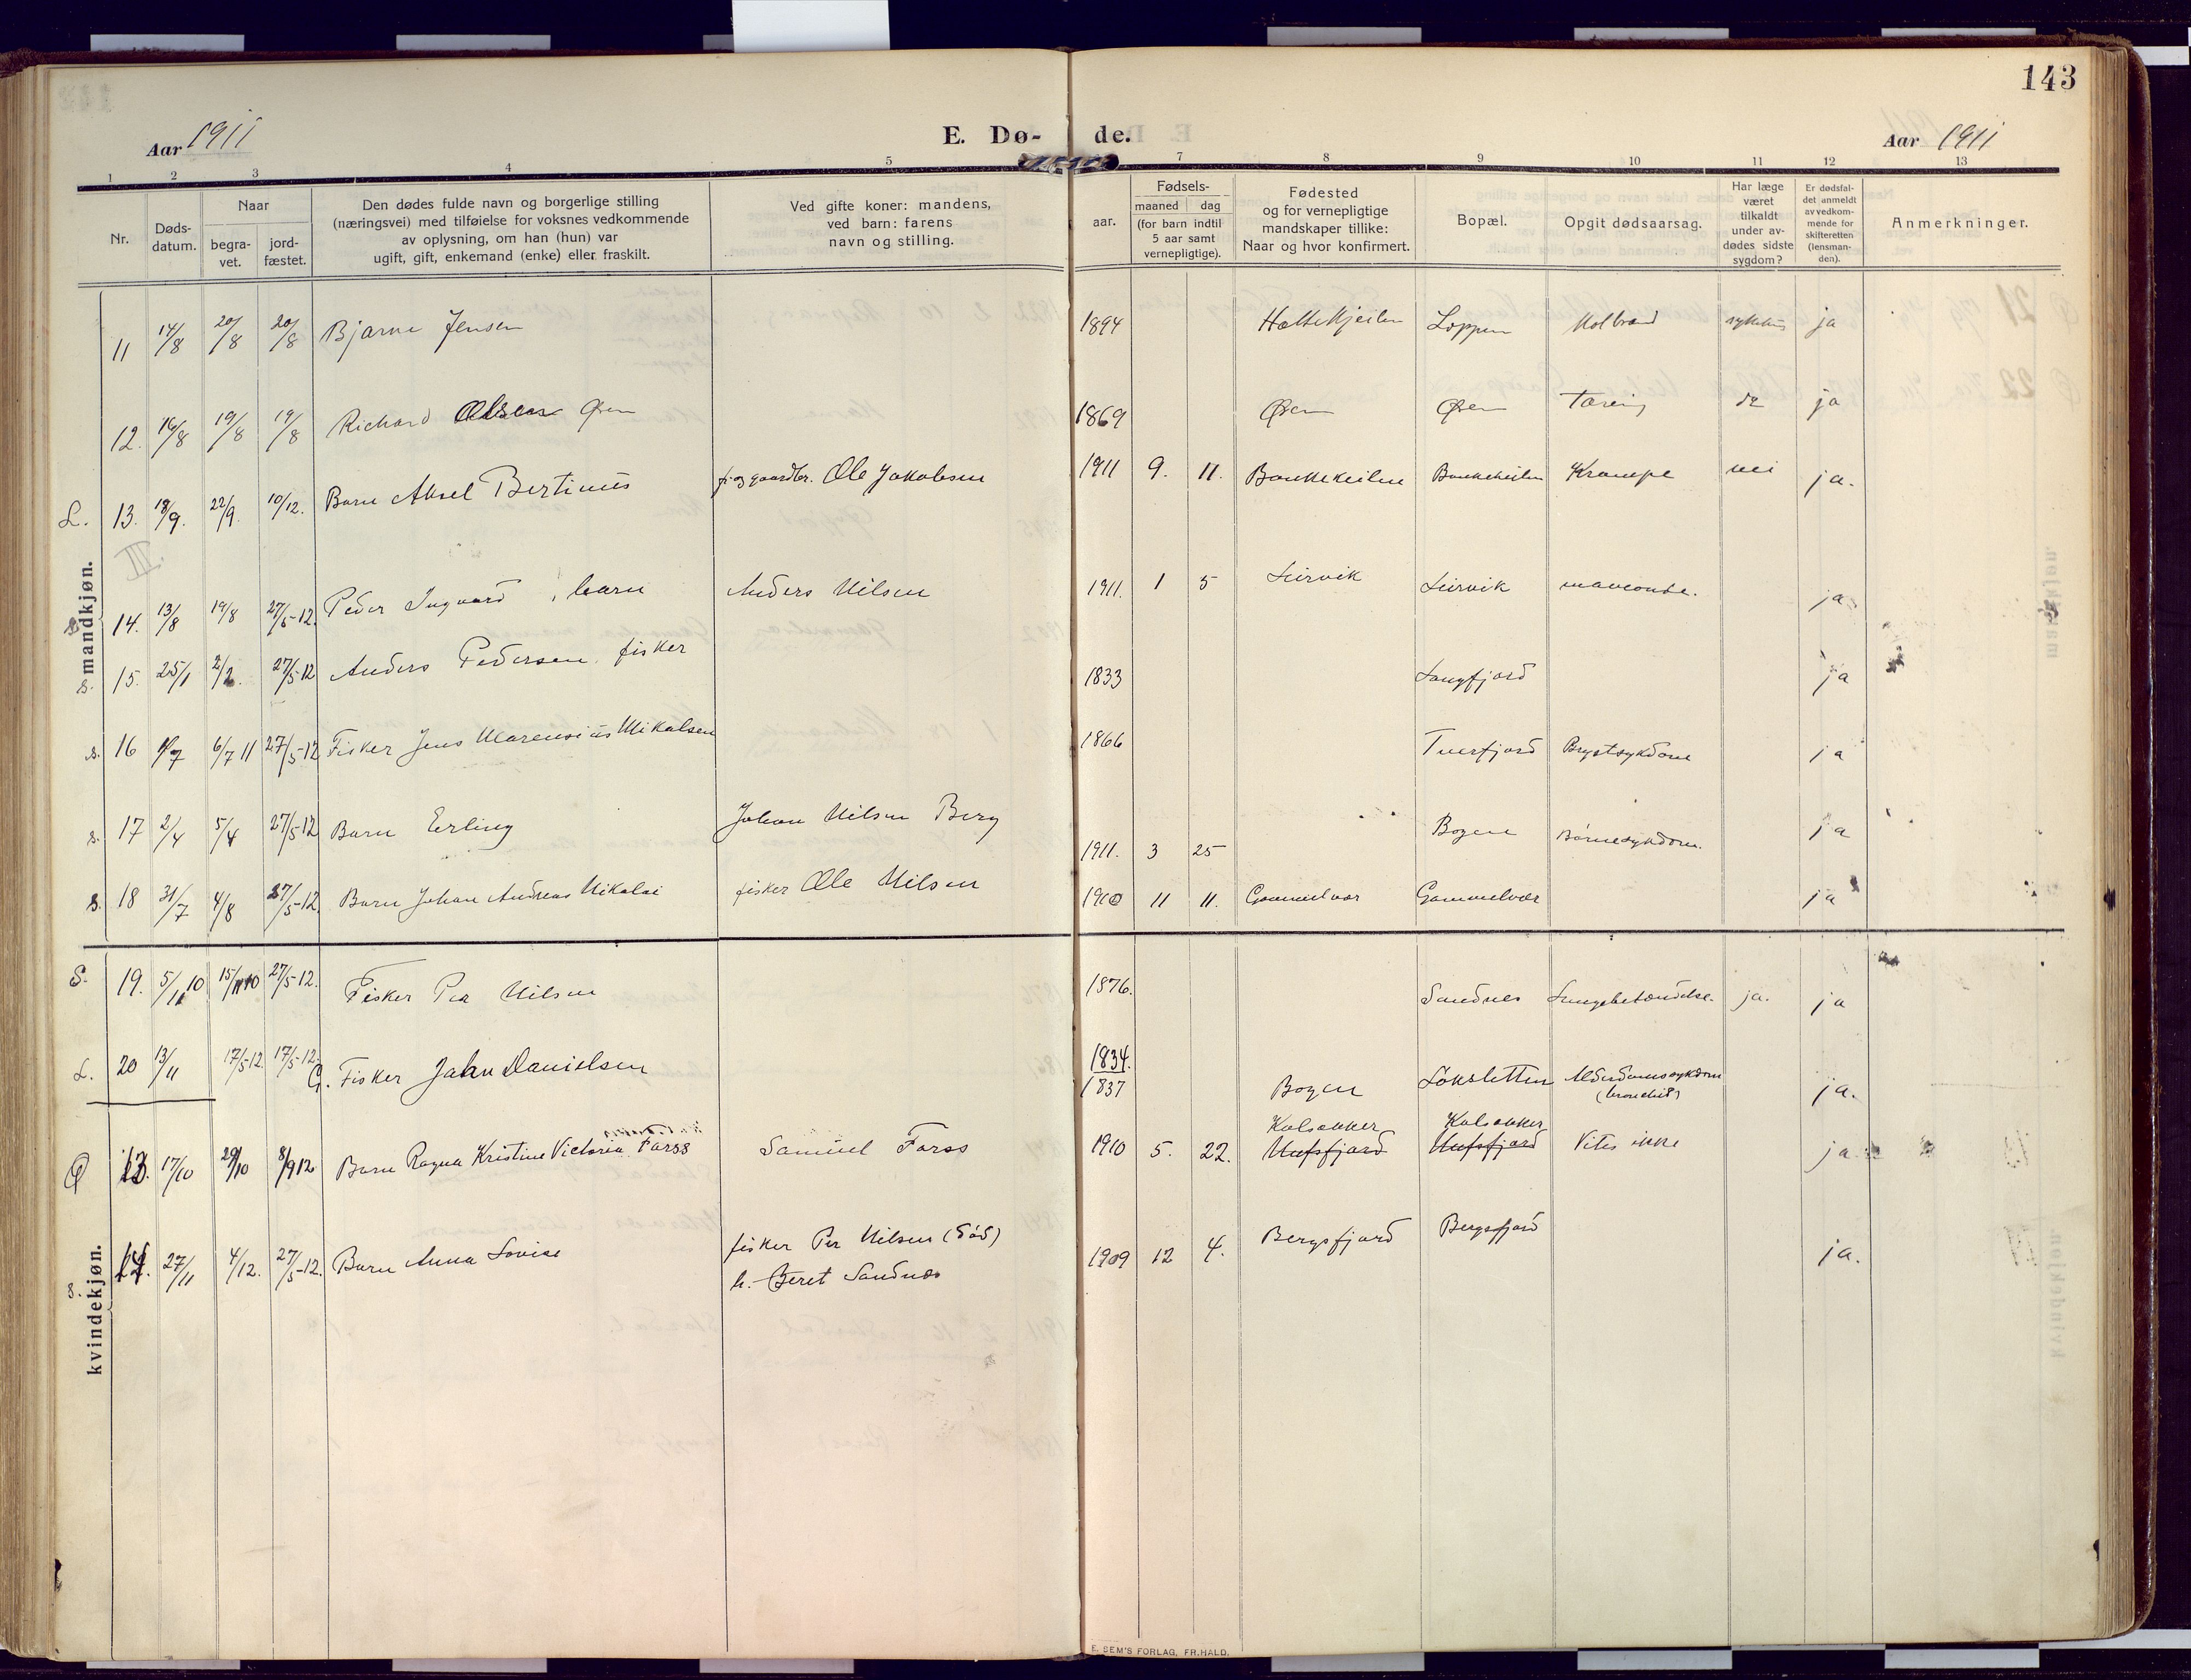 143
Aar 1911
E. Dø- de.
Aar 1911
1 2 3 4 5 7 8 9 10 11 12 13
Nr.
Døds-
datum.
Naar
begra-
vet.
jord-
fæstet.
Den dødes fulde navn og borgerlige stilling
(næringsvei) med tilføielse for voksnes vedkommende
av oplysning, om han (hun) var
ugift, gift, enkemand (enke) eller fraskilt.
Ved gifte koner: mandens,
ved barn: farens
navn og stilling.
Fødsels-
aar.
maaned dag
(for barn indtil
5 aar samt
vernepligtige).
Fødested
og for vernepligtige
mandskaper tillike:
Naar og hvor konfirmert.
Bopæl.
Opgit dødsaarsag.
Har læge
været
tilkaldt
under av-
dødes sidste
sygdom?
Er dødsfal-
det anmeldt
av vedkom-
mende for
skifteretten
(lensman-
den).
Anmerkninger.
mandkjøn.
11 14/8 20/8 20/8 Bjarne Jensen 1894 Loppen ja
12. 16/8 19/8 19/8 Richard Olsen Øren 1869 Øren Øren Tæring ja
L. 13. 18/9. 22/9. 10/12. Barn Aksel Bertinius f. og gaardbr. Ole Jakobsen 1911 9. 11. Bankekeilen Bankekeilen Krampe nei ja.
III.
14. 13/8 19/8 27/5-12. Peder Ingvard, barn Anders Nilsen 1911. 1 5 Leirvik Leirvik maveonde. ja
s. 15. 25/1 2/2. 27/5-12 Anders Pedersen, fisker 1833 Langfjord ja
s. 16 6/7 11 27/5-12 Fisker Jens Marensius Mikalsen 1866 Tverfjord Brystsykdom ja
s. 17 2/4 5/4 27/5-12 Barn Erling Johan Nilsen Berg 1911. 3 25 Bogen Barnesykdom. ja
s. 18 31/7 4/8 27/5-12. Barn Johan Andreas Nikolai fisker Ole Nilsen 1910 11 11. Gammelvær Gammelvær ja
S. 19. 5/11 10 15/11 10 27/5-12. Fisker Per Nilsen 1876. Sandnes Lungebetændelse. ja. ja
L. 20 13/11 17/5-12. 17/5-12. G. Fisker John Danielsen 1834. 1837 Bogen Løksletten Alderdomssykdom
(bronchit) ja.
kvindekjøn.
13. 17/10 29/10 8/9 12 Barn Ragna Kristine Victoria Farss Samuel Farss 1910 5. 22. Kalsakker Nufsfjord Kalsakker Nufsfjord Vites ikke ja
s. 14. 27/11 4/12. 27/5-12. Barn Anna Lovise fisker Per Nilsen (død)
h. Beret Sandnes 1909 12 4. Bergsfjord Bergsfjord ja.
E. SEM'S FORLAG, FR.HALD.